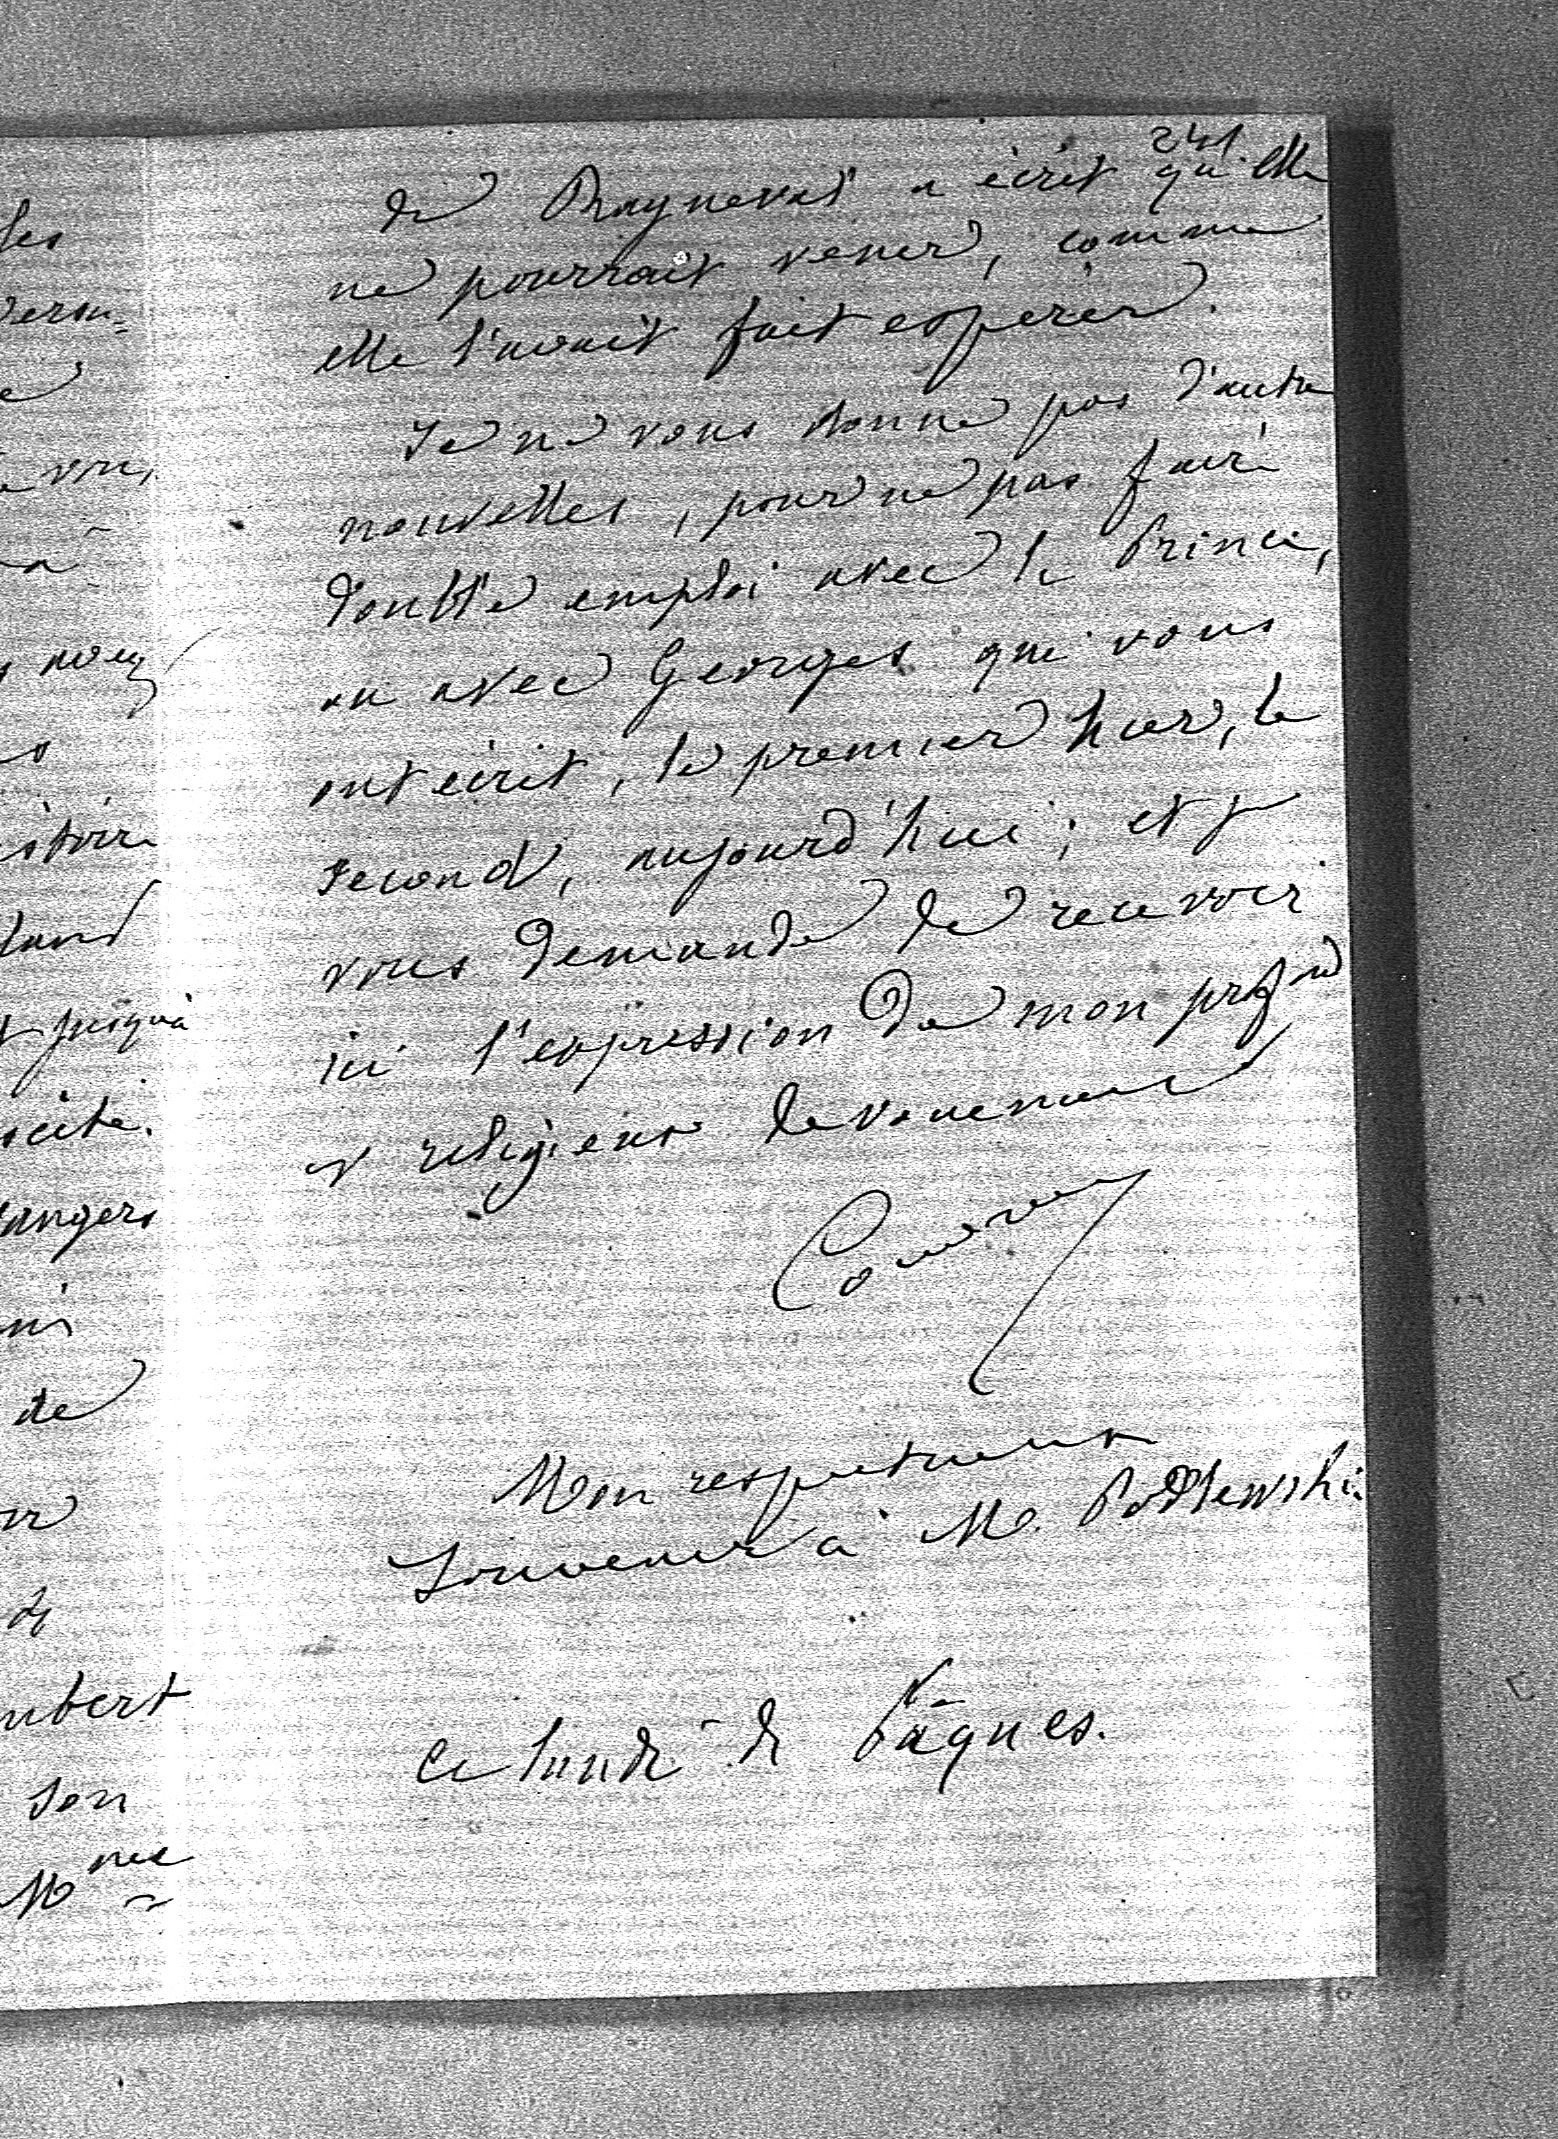 241.
de Rayneval a écrit qu'elle
ne pourrait venir, comme
elle l'avait fait espérer.
Je ne vous donne pas d'autre
nouvelles, pour ne pas faire
double emploi avec le Prince,
ou avec Georges qui vous
ont écrit, le premier hier, le
second, aujourd'hui ; et je
vous demande de recevoir
ici l'expression de mon profond
et religieux dévouement
Mon respectueux
souvenir à M. Podlewski.
Ce lundi de Pâques.
les
e
nous
istoire
jusqu'à
angers
de
de
mbert
son
Mme